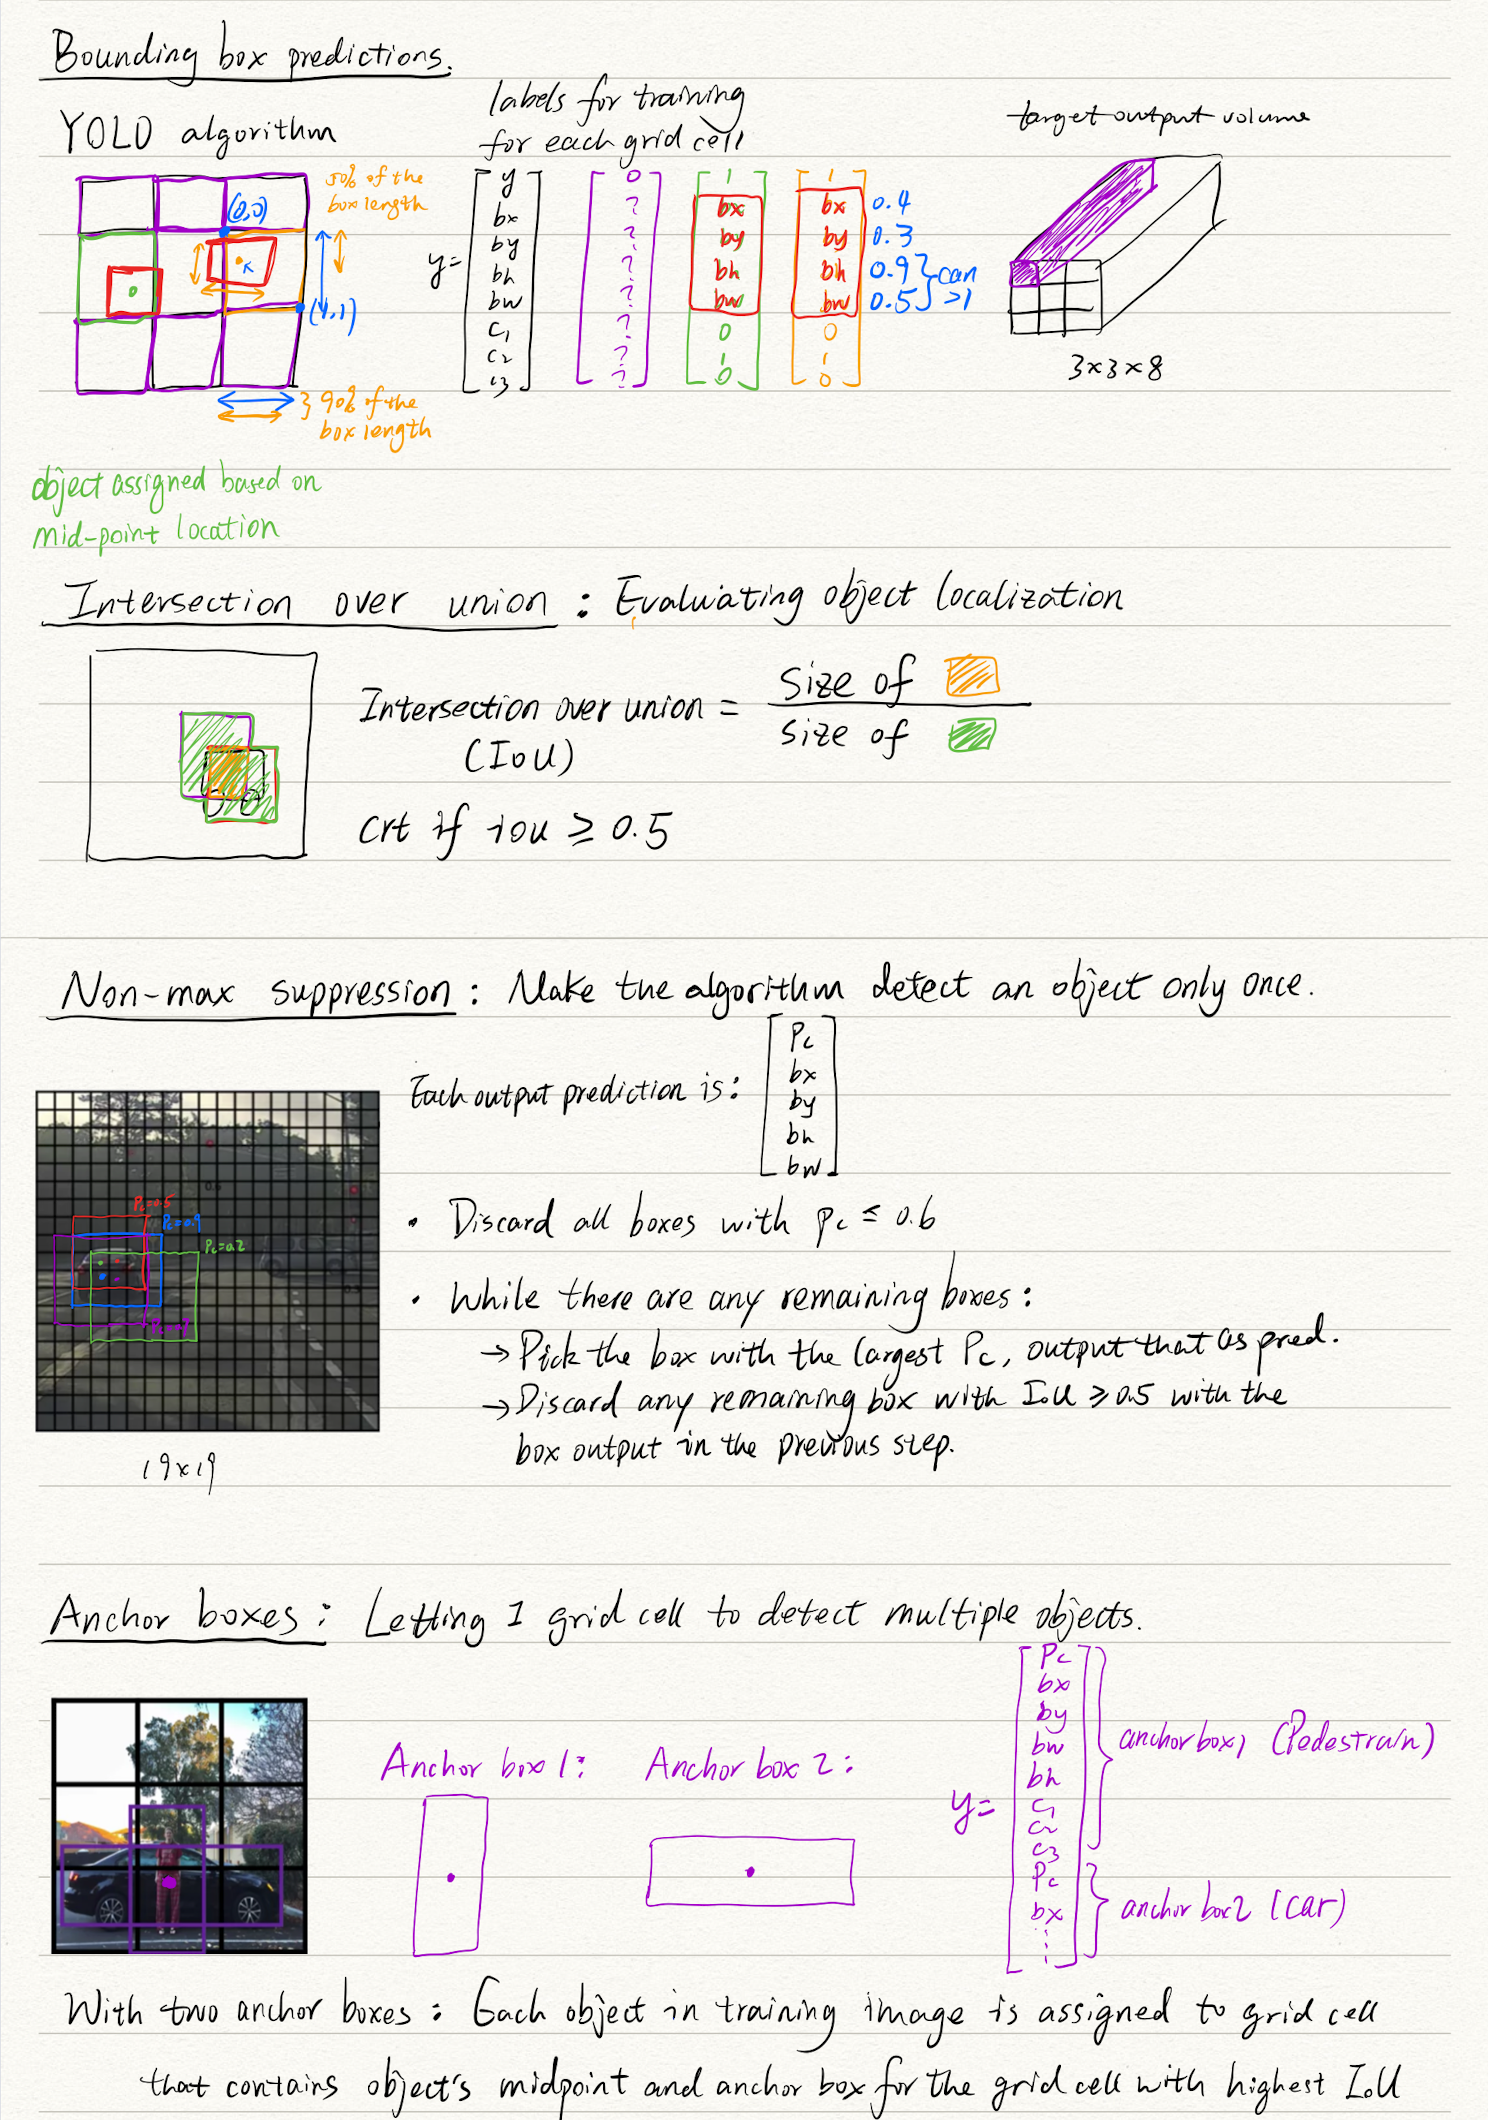 Bounding box predictions.
YOLO algorithm
labels for training
for each grid cell
target output volume
50% of the
box length
(0,0)
(1,1)
90% of the
box length
object assigned based on
mid-point location
y=
y
bx
by
bh
bw
c1
c2
c3
0
?
?
?
?
?
?
?
1
bx
by
bh
bw
0
1
0
1
bx
by
bh
bw
0
1
0
0.4
0.3
0.9 } can
0.5 } >1
3×3×8
Intersection over union : Evaluating object localization
Intersection over union =
(IoU)
Size of
Size of
Crt if iou ≥ 0.5
Non-max suppression : Make the algorithm detect an object only once.
Each output prediction is:
Pc
bx
by
bh
bw
Pc=0.5
Pc=0.9
Pc=0.2
19×19
• Discard all boxes with pc ≤ 0.6
• While there are any remaining boxes :
→ Pick the box with the largest Pc, output that as pred.
→ Discard any remaining box with IoU ≥ 0.5 with the
box output in the previous step.
Anchor boxes : Letting 1 grid cell to detect multiple objects.
Anchor box 1:
Anchor box 2:
y=
Pc
bx
by
bw
bh
c1
c2
c3
Pc
bx
⋮
anchor box1 (Pedestrain)
anchor box2 (car)
With two anchor boxes : Each object in training image is assigned to grid cell
that contains object's midpoint and anchor box for the grid cell with highest IoU